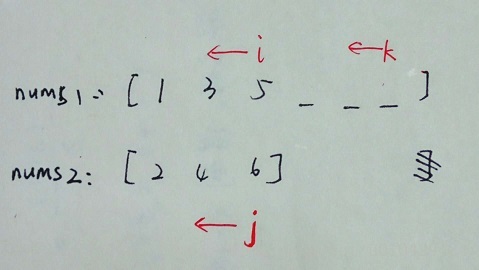 ← i ← k
nums1: [ 1 3 5 _ _ _ ]
nums2: [ 2 4 6 ]
← j